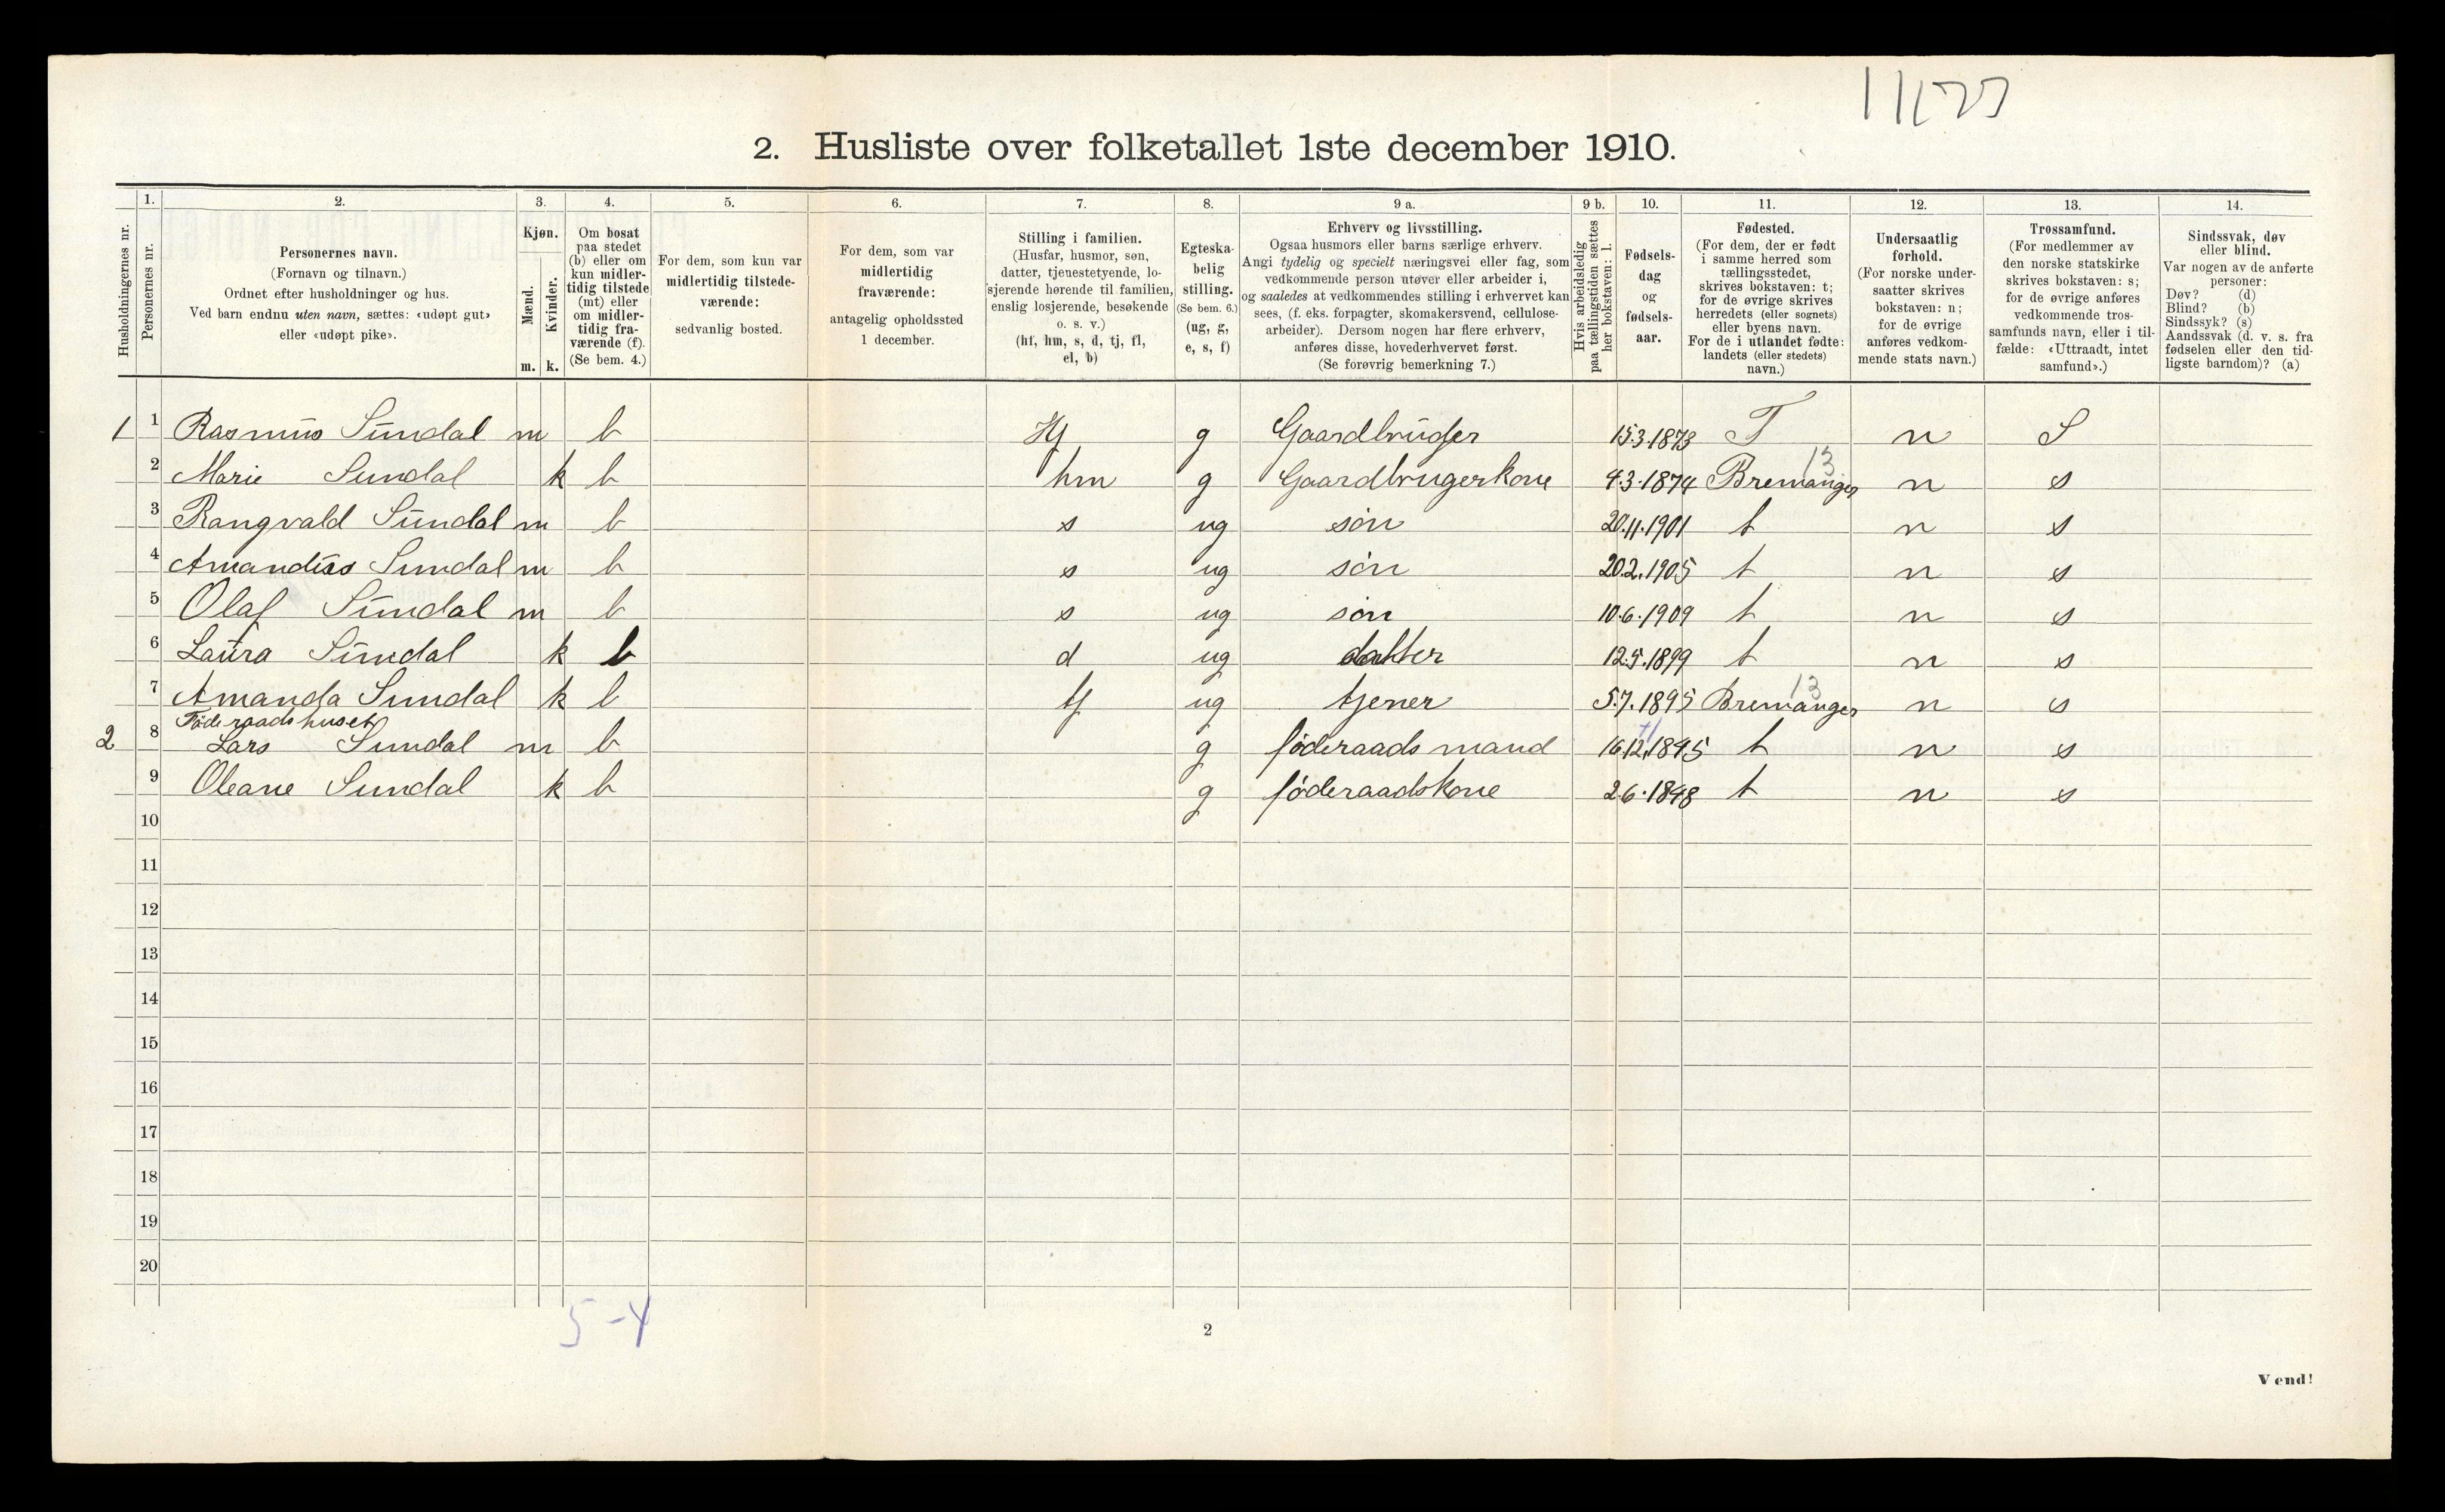 11577
2. Husliste over folketallet 1ste december 1910.
1. 2. 3. 4. 5. 6. 7. 8. 9 a. 9 b. 10. 11. 12. 13. 14.
Husholdningernes nr.
Personernes nr.
Personernes navn.
(Fornavn og tilnavn.)
Ordnet efter husholdninger og hus.
Ved barn endnu uten navn, sættes: «udøpt gut»
eller «udøpt pike».
Kjøn.
Mænd.
Kvinder.
m. k.
Om bosat
paa stedet
(b) eller om
kun midler-
tidig tilstede
(mt) eller
om midler-
tidig fra-
værende (f).
(Se bem. 4.)
For dem, som kun var
midlertidig tilstede-
værende:
sedvanlig bosted.
For dem, som var
midlertidig
fraværende:
antagelig opholdssted
1 december.
Stilling i familien.
(Husfar, husmor, søn,
datter, tjenestetyende, lo-
sjerende hørende til familien,
enslig losjerende, besøkende
o. s. v.)
(hf, hm, s, d, tj, fl,
el, b)
Egteska-
belig
stilling.
(Se bem. 6.)
(ug, g,
e, s, f)
Erhverv og livsstilling.
Ogsaa husmors eller barns særlige erhverv.
Angi tydelig og specielt næringsvei eller fag, som
vedkommende person utøver eller arbeider i,
og saaledes at vedkommendes stilling i erhvervet kan
sees, (f. eks. forpagter, skomakersvend, cellulose-
arbeider). Dersom nogen har flere erhverv,
anføres disse, hovederhvervet først.
(Se forøvrig bemerkning 7.)
Hvis arbeidsledig
paa tællingstiden sættes
her bokstaven: l.
Fødsels-
dag
og
fødsels-
aar.
Fødested.
(For dem, der er født
i samme herred som
tællingsstedet,
skrives bokstaven: t;
for de øvrige skrives
herredets (eller sognets)
eller byens navn.
For de i utlandet fødte:
landets (eller stedets)
navn.)
Undersaatlig
forhold.
(For norske under-
saatter skrives
bokstaven: n;
for de øvrige
anføres vedkom-
mende stats navn.)
Trossamfund.
(For medlemmer av
den norske statskirke
skrives bokstaven: s;
for de øvrige anføres
vedkommende tros-
samfunds navn, eller i til-
fælde: «Uttraadt, intet
samfund».)
Sindssvak, døv
eller blind.
Var nogen av de anførte
personer:
Døv? (d)
Blind? (b)
Sindssyk? (s)
Aandssvak (d. v. s. fra
fødselen eller den tid-
ligste barndom)? (a)
1 1 Rasmus Sundal m b Hf g Gaardbruger 15.3.1873 T n S
2 Marie Sundal k b hm g Gaardbrugerkone 4.3.1874 Bremanger 13 n s
3 Rangvald Sundal m b s ug søn 20.11.1901 t n s
4 Amandus Sundal m b s ug søn 20.2.1905 t n s
5 Olaf Sundal m b s ug søn 10.6.1909 t n s
6 Laura Sundal k b d ug datter 12.5.1899 t n s
7 Amanda Sundal k b tj ug tjener 5.7.1895 Bremanger 13 n s
Føderaadshuset
2 8 Lars Sundal m b g føderaads mand 16.12.1845 t n s
9 Oleane Sundal k b g føderaadskone 2.6.1848 t n s
10
11
12
13
14
15
16
17
18
19
20
5-4
2
Vend!